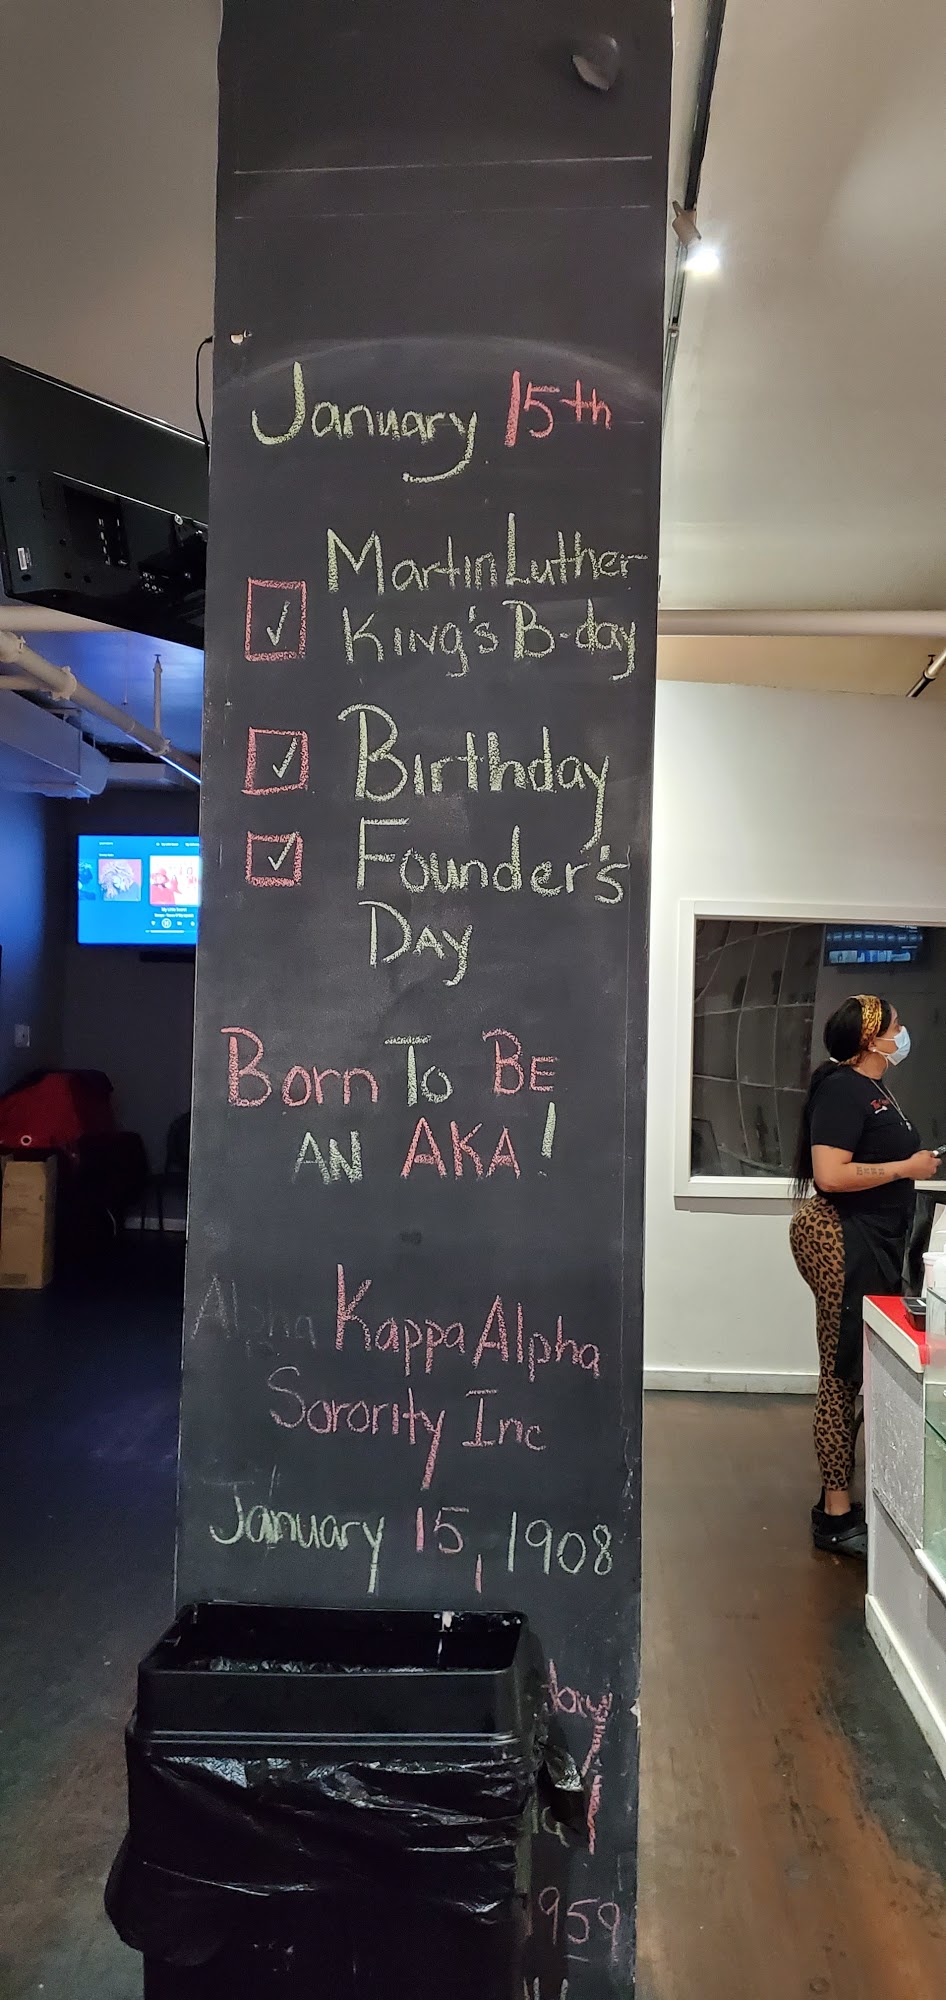 January 15th
Martin Luther
King's B-day
Birthday
Founder's
Day
Born To BE
AN AKA!
Alpha Kappa Alpha
Sorority Inc
January 15, 1908
1959